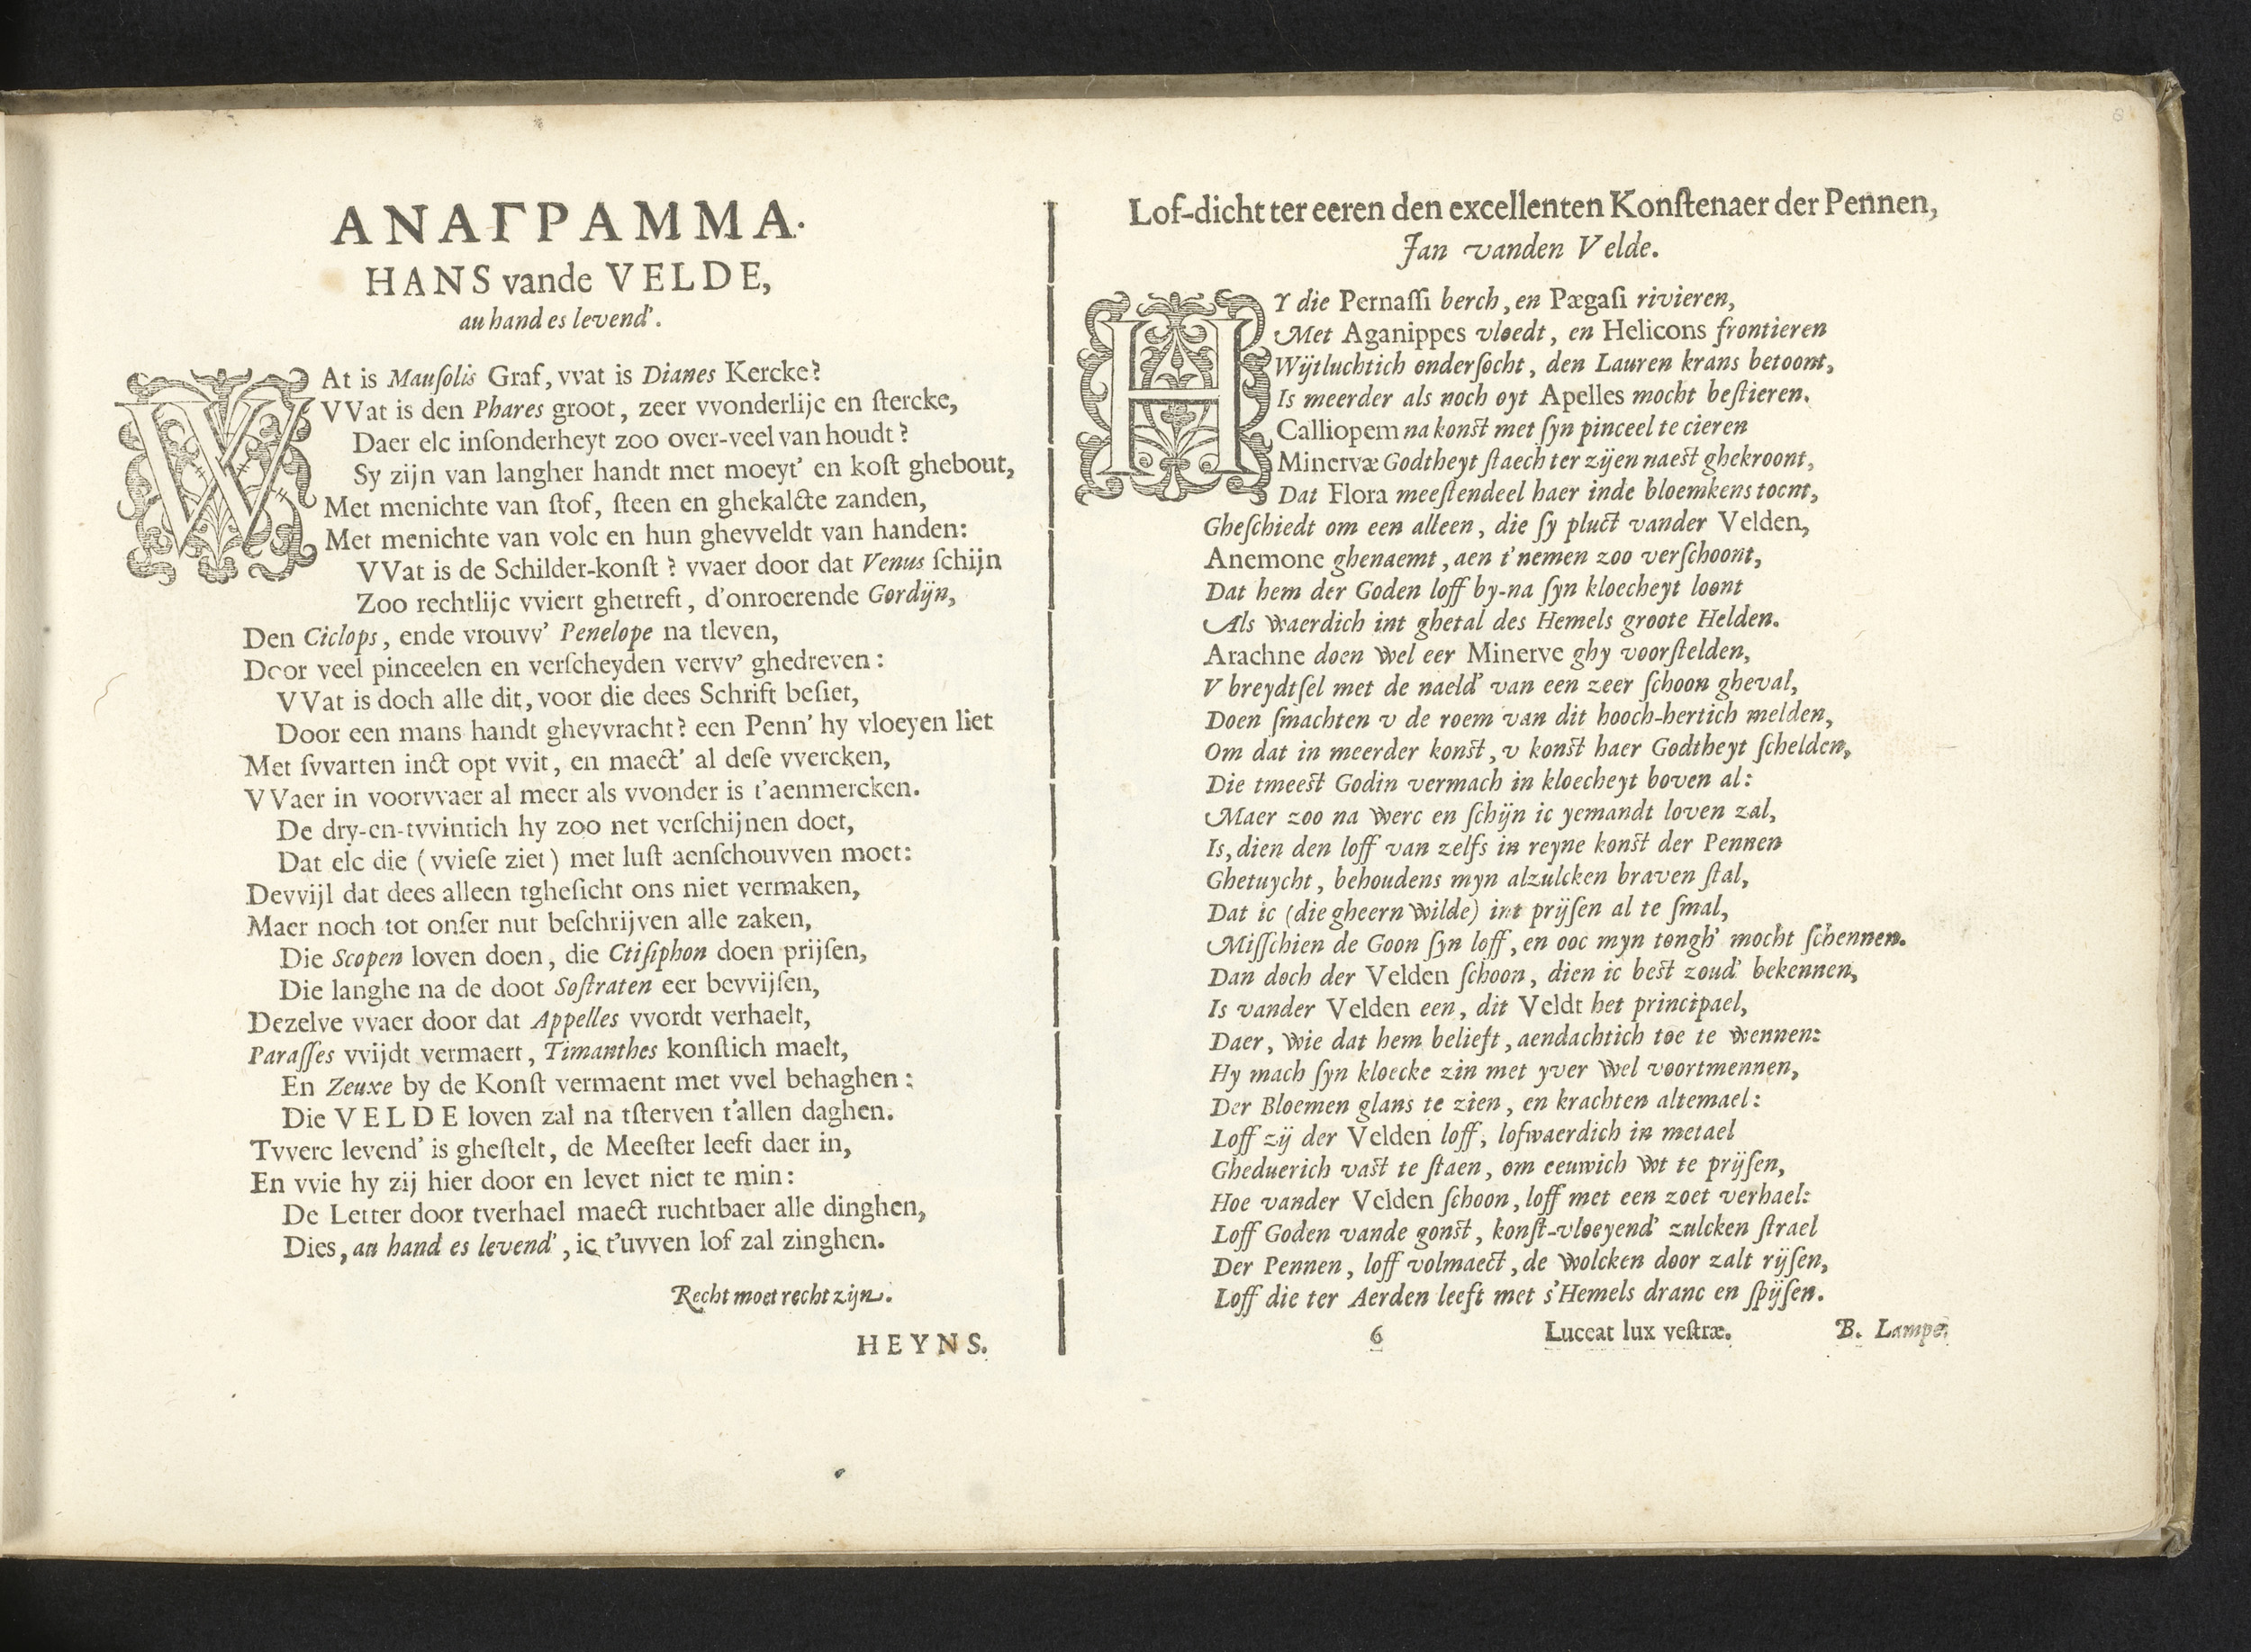 ΑΝΑΓΡΑΜΜΑ.
HANS vande VELDE,
au hand es levend'.
WAt is Mauſolis Graf, vvat is Dianes Kercke?
VVat is den Phares groot, zeer vvonderlijc en ſtercke,
Daer elc inſonderheyt zoo over-veel van houdt?
Sy zijn van langher handt met moeyt' en koſt ghebout,
Met menichte van ſtof, ſteen en ghekalcte zanden,
Met menichte van volc en hun ghevveldt van handen:
VVat is de Schilder-konſt? vvaer door dat Venus ſchijn
Zoo rechtlijc vviert ghetreft, d'onroerende Gordijn,
Den Ciclops, ende vrouvv' Penelope na tleven,
Door veel pinceelen en verſcheyden vervv' ghedreven:
VVat is doch alle dit, voor die dees Schrift beſiet,
Door een mans handt ghevvracht? een Penn' hy vloeyen liet
Met ſvvarten inct opt vvit, en maect' al deſe vvercken,
VVaer in voorvvaer al meer als vvonder is t'aenmercken.
De dry-en-tvvintich hy zoo net verſchijnen doet,
Dat elc die (vvieſe ziet) met luſt aenſchouvven moet:
Devvijl dat dees alleen tgheſicht ons niet vermaken,
Maer noch tot onſer nut beſchrijven alle zaken,
Die Scopen loven doen, die Ctiſiphon doen prijſen,
Die langhe na de doot Soſtraten eer bevvijſen,
Dezelve vvaer door dat Appelles vvordt verhaelt,
Paraſſes vvijdt vermaert, Timanthes konſtich maelt,
En Zeuxe by de Konſt vermaent met vvel behaghen:
Die VELDE loven zal na tſterven t'allen daghen.
Tvverc levend' is gheſtelt, de Meeſter leeft daer in,
En vvie hy zij hier door en levet niet te min:
De Letter door tverhael maect ruchtbaer alle dinghen,
Dies, au hand es levend', ic t'uvven lof zal zinghen.
Recht moet recht zijn.
HEYNS.
Lof-dicht ter eeren den excellenten Konſtenaer der Pennen,
Jan vanden Velde.
HY die Pernaſſi berch, en Pægaſi rivieren,
Met Aganippes vloedt, en Helicons frontieren
Wijtluchtich onderſocht, den Lauren krans betoont,
Is meerder als noch oyt Apelles mocht beſtieren.
Calliopem na konſt met ſyn pinceel te cieren
Minervæ Godtheyt ſtaech ter zijen naeſt ghekroont,
Dat Flora meeſtendeel haer inde bloemkens toont,
Gheſchiedt om een alleen, die ſy pluct vander Velden,
Anemone ghenaemt, aen t'nemen zoo verſchoont,
Dat hem der Goden loff by-na ſyn kloecheyt loont
Als waerdich int ghetal des Hemels groote Helden.
Arachne doen wel eer Minerve ghy voorſtelden,
V breydtſel met de naeld' van een zeer ſchoon gheval,
Doen ſmachten v de roem van dit hooch-hertich melden,
Om dat in meerder konſt, v konſt haer Godtheyt ſchelden,
Die tmeeſt Godin vermach in kloecheyt boven al:
Maer zoo na werc en ſchijn ic yemandt loven zal,
Is, dien den loff van zelfs in reyne konſt der Pennen
Ghetuycht, behoudens myn alzulcken braven ſtal,
Dat ic (die gheern wilde) int prijſen al te ſmal,
Miſſchien de Goon ſyn loff, en ooc myn tongh' mocht ſchennen.
Dan doch der Velden ſchoon, dien ic beſt zoud' bekennen,
Is vander Velden een, dit Veldt het principael,
Daer, wie dat hem belieft, aendachtich toe te wennen:
Hy mach ſyn kloecke zin met yver wel voortmennen,
Der Bloemen glans te zien, en krachten altemael:
Loff zij der Velden loff, lofwaerdich in metael
Gheduerich vaſt te ſtaen, om eeuwich wt te prijſen,
Hoe vander Velden ſchoon, loff met een zoet verhael:
Loff Goden vande gonſt, konſt-vloeyend' zulcken ſtrael
Der Pennen, loff volmaect, de wolcken door zalt rijſen,
Loff die ter Aerden leeft met s'Hemels dranc en ſpijſen.
6 Luceat lux veſtræ. B. Lampe.